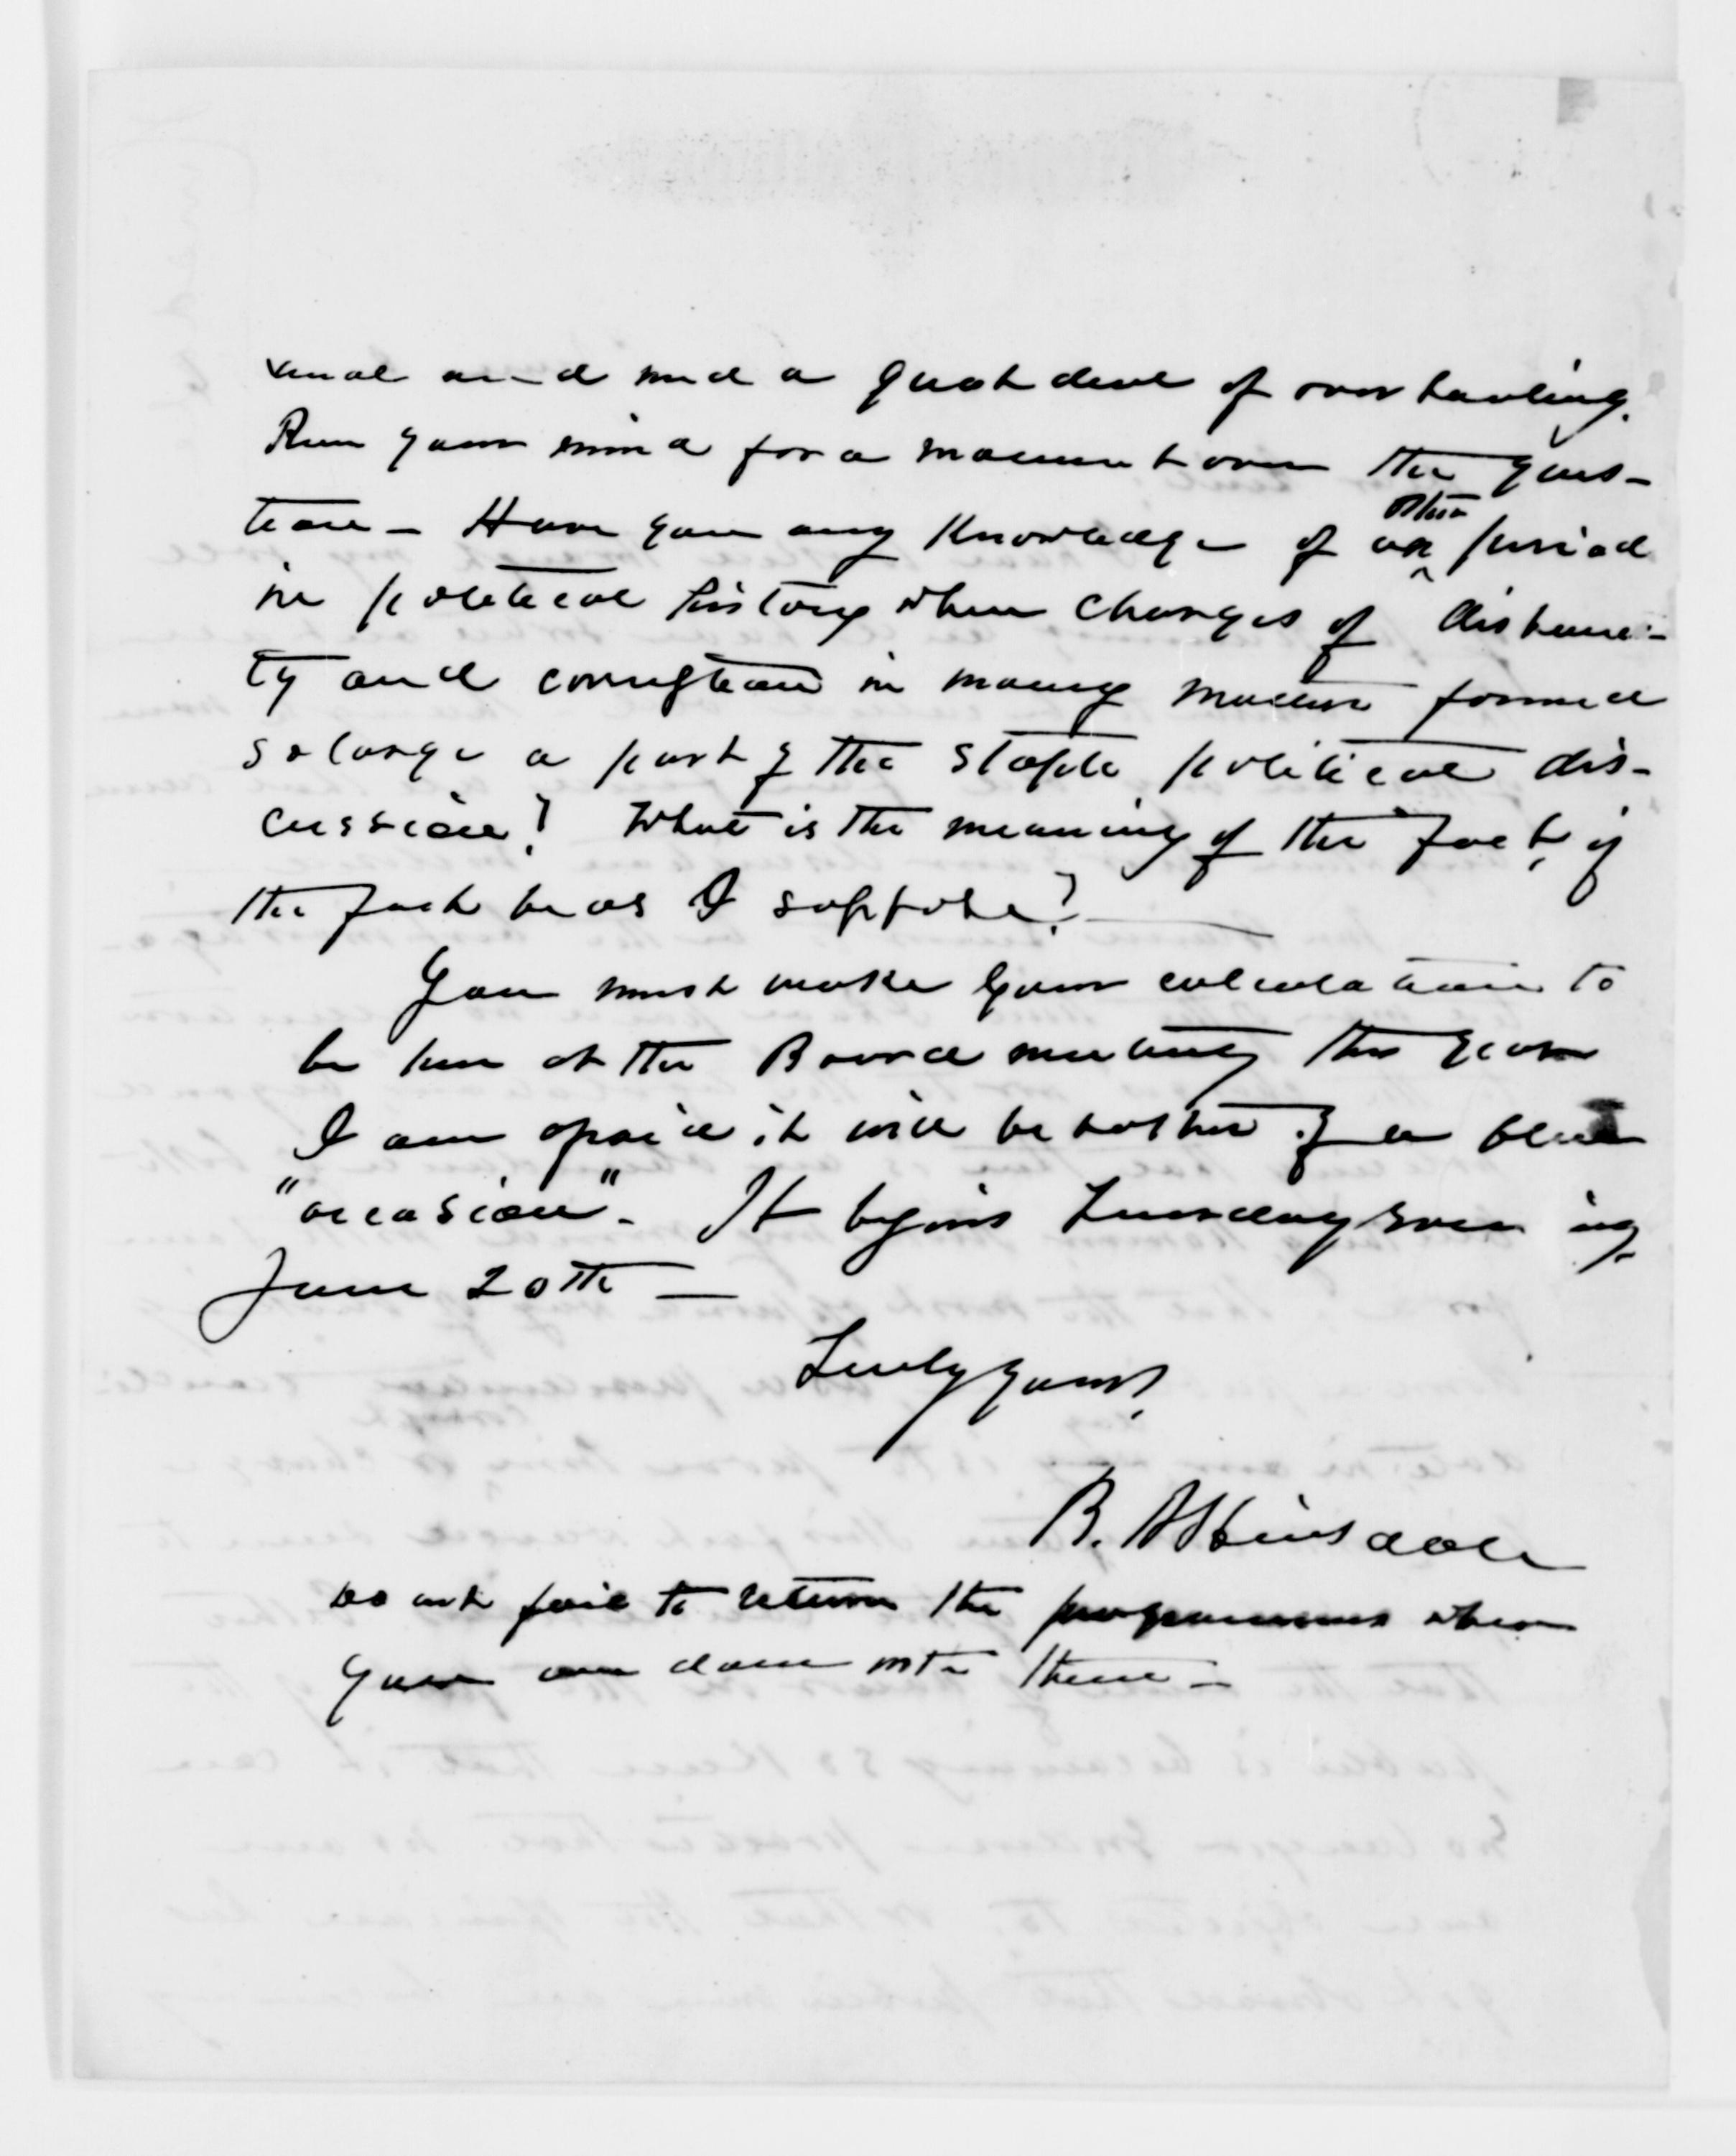 venal and need a great deal of overhauling.
Run your mind for a moment over the ques-
tion - Have you any knowledge of an other period
in political history when charges of dishones-
ty and corruption in money matters formed
so large a part of the staple political dis-
cussion? What is the meaning of the fact, if
the fact be as I suppose?
You must make your calculation to
be here at the Board meeting this year
I am afraid it will be rather of a blue
"occasion". It begins Tuesday evening
June 20th -
Truly yours,
B. A Hinsdale
Do not fail to return the programmes when
you are done with them -